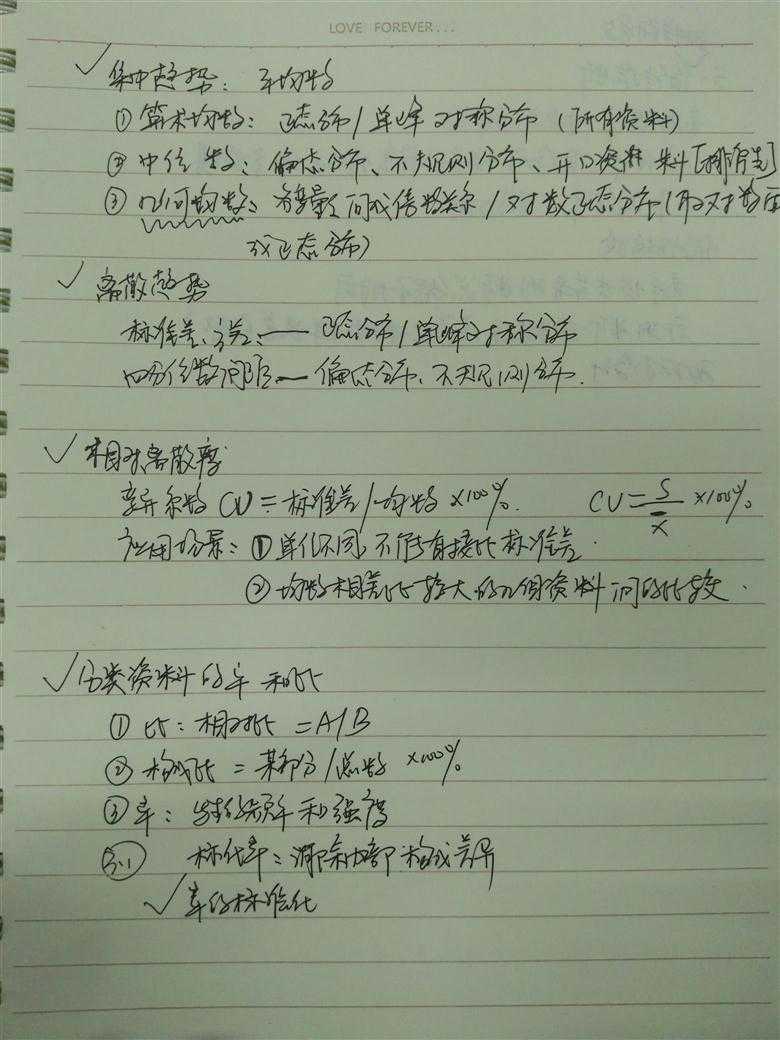 LOVE FOREVER...
✓集中趋势: 平均数
①算术均数: 正态分布/单峰对称分布 (所有资料)
②中位数: 偏态分布、不规则分布、开口资料 料[排序先]
③几何均数: 各变量间成倍数关系/对数正态分布(取对数后
成正态分布)
✓离散趋势
标准差、方差: — 正态分布/单峰对称分布
四分位数间距 — 偏态分布、不规则分布.
✓相对离散度
变异系数 CV = 标准差/均数 ×100%. CV = S/x̄ ×100%
应用场景: ①单位不同, 不能直接比标准差.
②均数相差比较大的几个资料间的比较.
✓分类资料的率和比
①比: 相对比 = A/B
②构成比 = 某部分/总数 ×100%
③率: 频率和强度
③.1 标化率: 消除内部构成差异
✓率的标准化